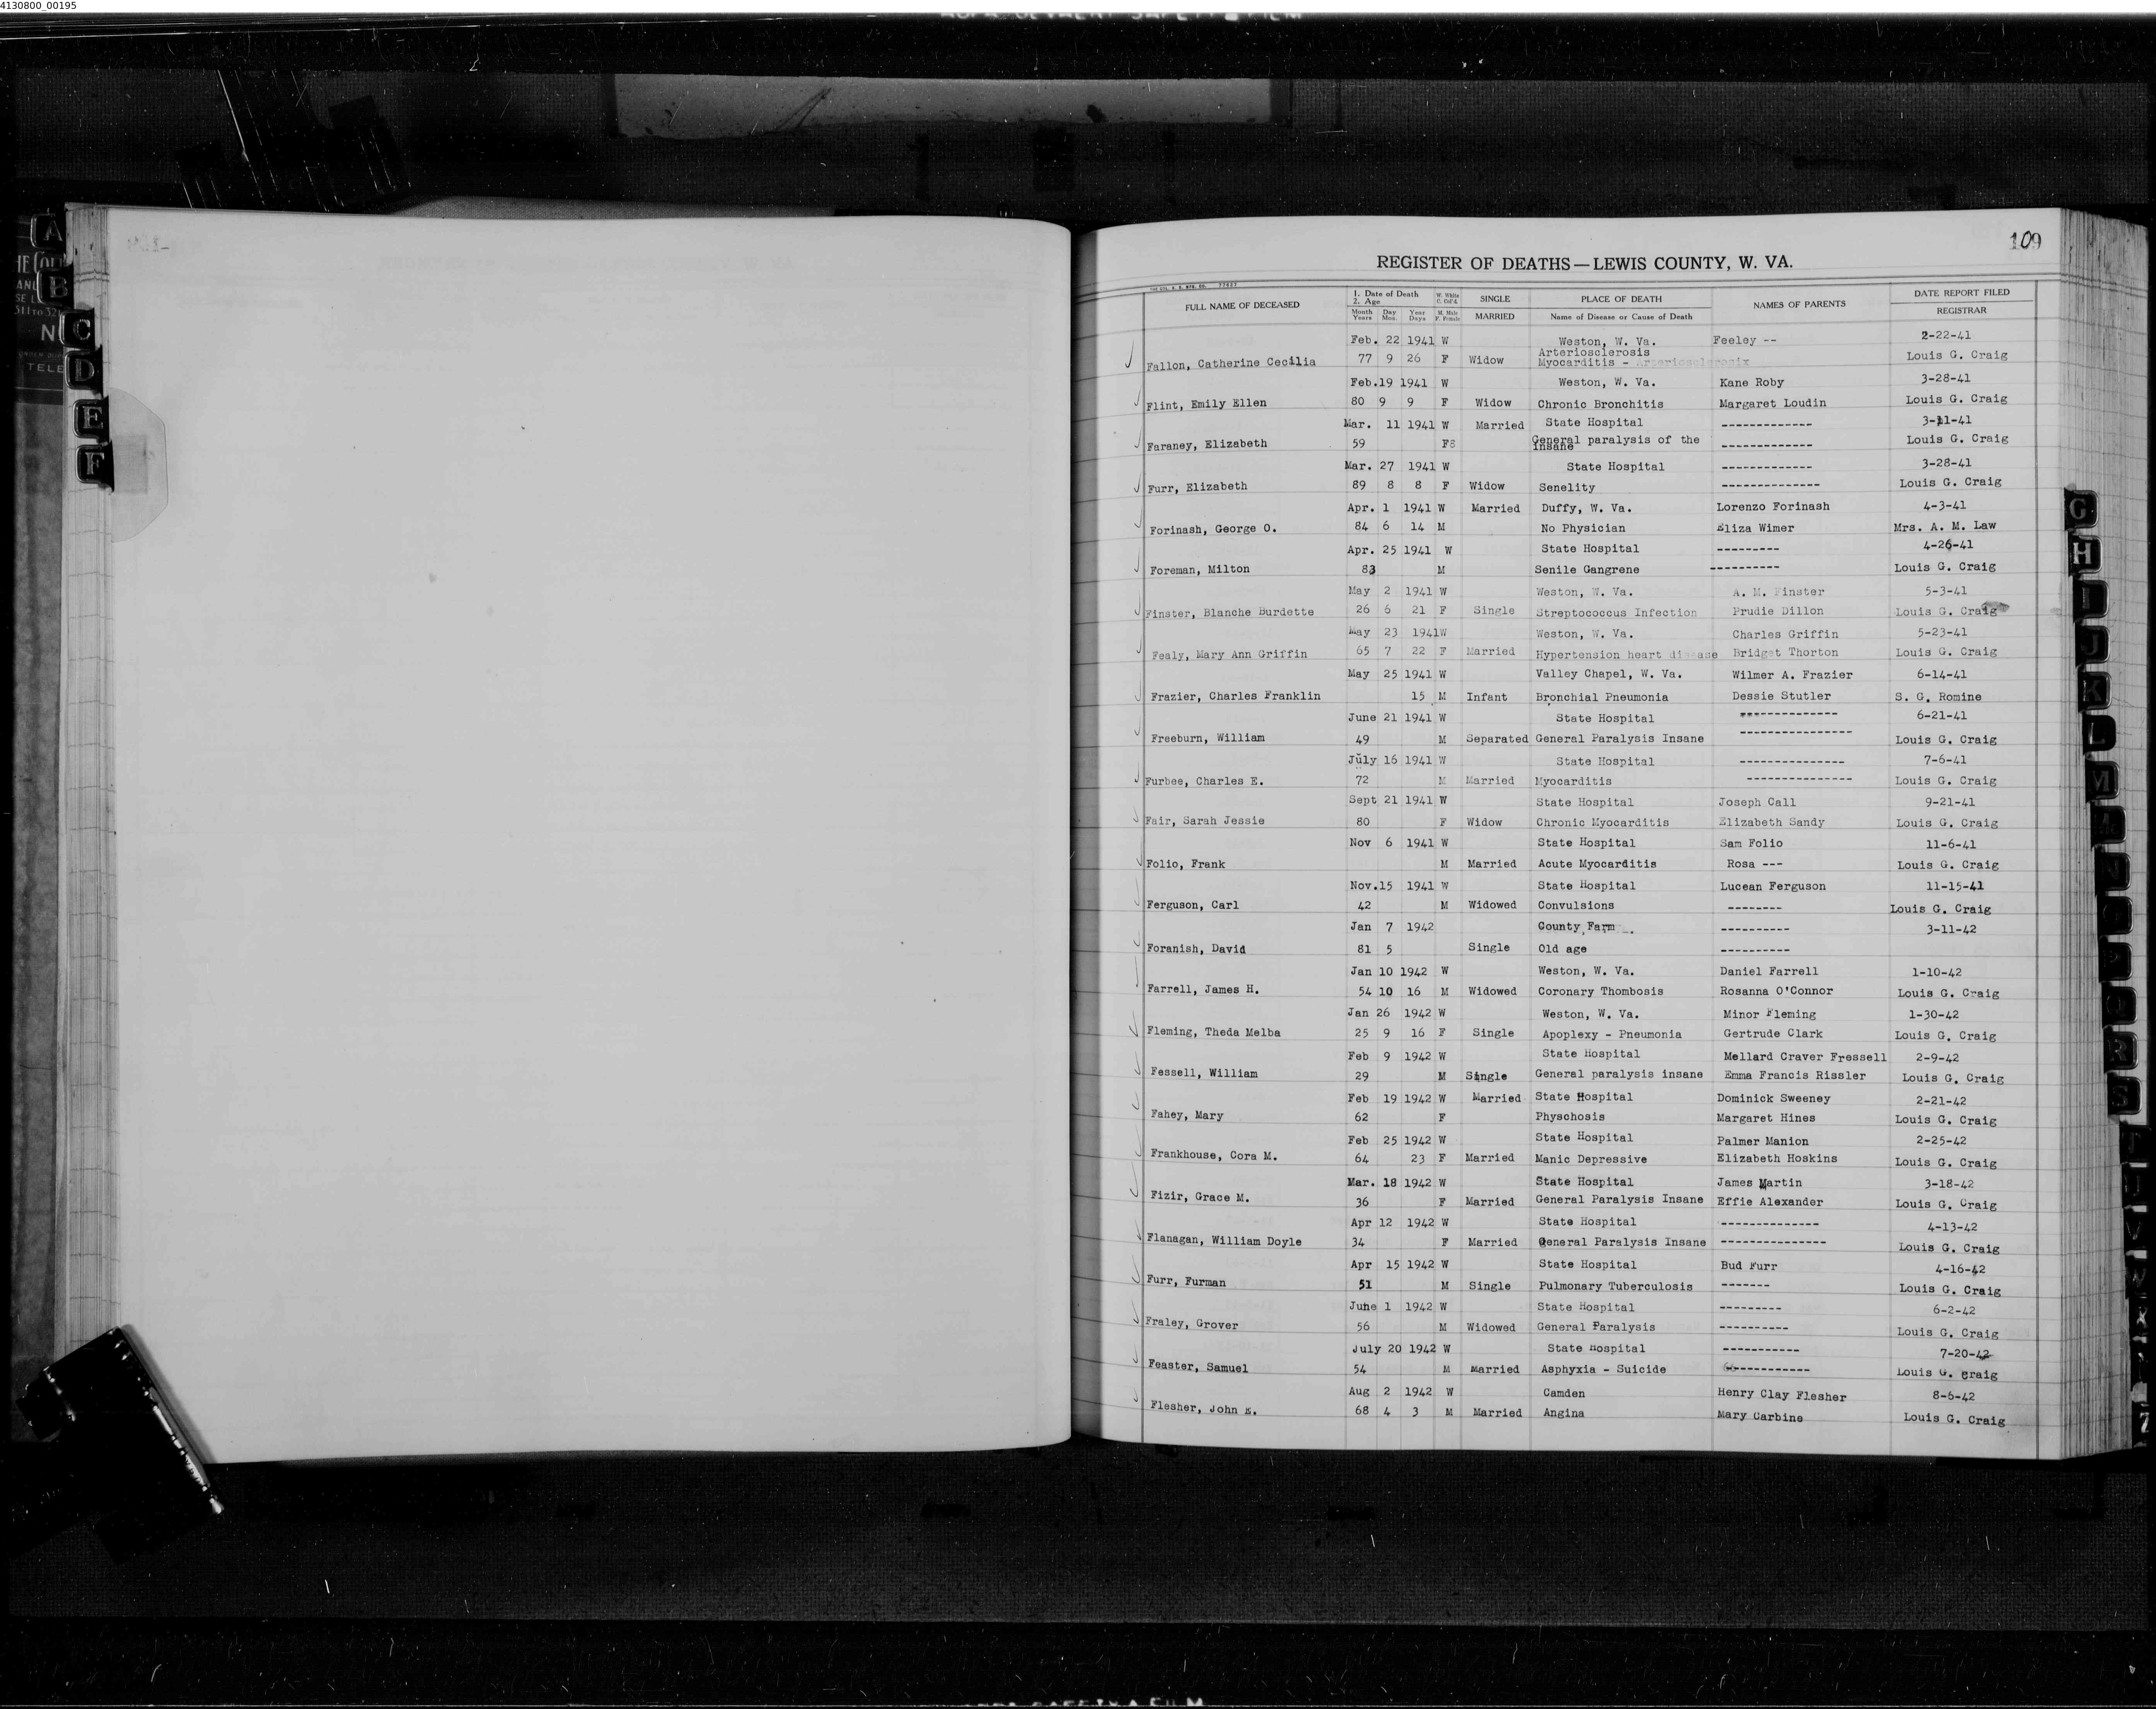 4130800_00195
109
REGISTER OF DEATHS—LEWIS COUNTY, W. VA.
FULL NAME OF DECEASED 1. Date of Death 2. Age Month Day Year Years Mos. Days W. White C. Col'd M. Male F. Female SINGLE MARRIED PLACE OF DEATH Name of Disease or Cause of Death NAMES OF PARENTS DATE REPORT FILED REGISTRAR
Feb. 22 1941 W Weston, W. Va. Feeley -- 2-22-41
Arteriosclerosis
Fallon, Catherine Cecilia 77 9 26 F Widow Myocarditis - Louis G. Craig
Feb.19 1941 W Weston, W. Va. Kane Roby 3-28-41
Flint, Emily Ellen 80 9 9 F Widow Chronic Bronchitis Margaret Loudin Louis G. Craig
Mar. 11 1941 W Married State Hospital ------------- 3-11-41
Faraney, Elizabeth 59 F General paralysis of the Insane ------------- Louis G. Craig
Mar. 27 1941 W State Hospital ------------- 3-28-41
Furr, Elizabeth 89 8 8 F Widow Senelity -------------- Louis G. Craig
Apr. 1 1941 W Married Duffy, W. Va. Lorenzo Forinash 4-3-41
Forinash, George O. 84 6 14 M No Physician Eliza Wimer Mrs. A. M. Law
Apr. 25 1941 W State Hospital --------- 4-26-41
Foreman, Milton 83 M Senile Gangrene ---------- Louis G. Craig
May 2 1941 W Weston, W. Va. A. M. Finster 5-3-41
Finster, Blanche Burdette 26 6 21 F Single Streptococcus Infection Prudie Dillon Louis G. Craig
May 23 1941W Weston, W. Va. Charles Griffin 5-23-41
Fealy, Mary Ann Griffin 65 7 22 F Married Hypertension heart disease Bridget Thorton Louis G. Craig
May 25 1941 W Valley Chapel, W. Va. Wilmer A. Frazier 6-14-41
Frazier, Charles Franklin 15 M Infant Bronchial Pneumonia Dessie Stutler S. G. Romine
June 21 1941 W State Hospital -------------- 6-21-41
Freeburn, William 49 M Separated General Paralysis Insane ---------------- Louis G. Craig
July 16 1941 W State Hospital --------------- 7-6-41
Furbee, Charles E. 72 M Married Myocarditis --------------- Louis G. Craig
Sept 21 1941 W State Hospital Joseph Call 9-21-41
Fair, Sarah Jessie 80 F Widow Chronic Myocarditis Elizabeth Sandy Louis G. Craig
Nov 6 1941 W State Hospital Sam Folio 11-6-41
Folio, Frank M Married Acute Myocarditis Rosa --- Louis G. Craig
Nov.15 1941 W State Hospital Lucean Ferguson 11-15-41
Ferguson, Carl 42 M Widowed Convulsions -------- Louis G. Craig
Jan 7 1942 County Farm ---------- 3-11-42
Foranish, David 81 5 Single Old age ----------
Jan 10 1942 W Weston, W. Va. Daniel Farrell 1-10-42
Farrell, James H. 54 10 16 M Widowed Coronary Thombosis Rosanna O'Connor Louis G. Craig
Jan 26 1942 W Weston, W. Va. Minor Fleming 1-30-42
Fleming, Theda Melba 25 9 16 F Single Apoplexy - Pneumonia Gertrude Clark Louis G. Craig
Feb 9 1942 W State Hospital Mellard Craver Fressell 2-9-42
Fessell, William 29 M Single General paralysis insane Emma Francis Rissler Louis G. Craig
Feb 19 1942 W Married State Hospital Dominick Sweeney 2-21-42
Fahey, Mary 62 F Physchosis Margaret Hines Louis G. Craig
Feb 25 1942 W State Hospital Palmer Manion 2-25-42
Frankhouse, Cora M. 64 23 F Married Manic Depressive Elizabeth Hoskins Louis G. Craig
Mar. 18 1942 W State Hospital James Martin 3-18-42
Fizir, Grace M. 36 F Married General Paralysis Insane Effie Alexander Louis G. Craig
Apr 12 1942 W State Hospital -------------- 4-13-42
Flanagan, William Doyle 34 F Married General Paralysis Insane --------------- Louis G. Craig
Apr 15 1942 W State Hospital Bud Furr 4-16-42
Furr, Furman 51 M Single Pulmonary Tuberculosis ------- Louis G. Craig
June 1 1942 W State Hospital --------- 6-2-42
Fraley, Grover 56 M Widowed General Paralysis ---------- Louis G. Craig
July 20 1942 W State Hospital ----------- 7-20-42
Feaster, Samuel 54 M Married Asphyxia - Suicide ------------ Louis G. Craig
Aug 2 1942 W Camden Henry Clay Flesher 8-6-42
Flesher, John E. 68 4 3 M Married Angina Mary Carbine Louis G. Craig
A
B
C
D
E
F
G
H
I
J
K
L
M
N
O
P
Q
R
S